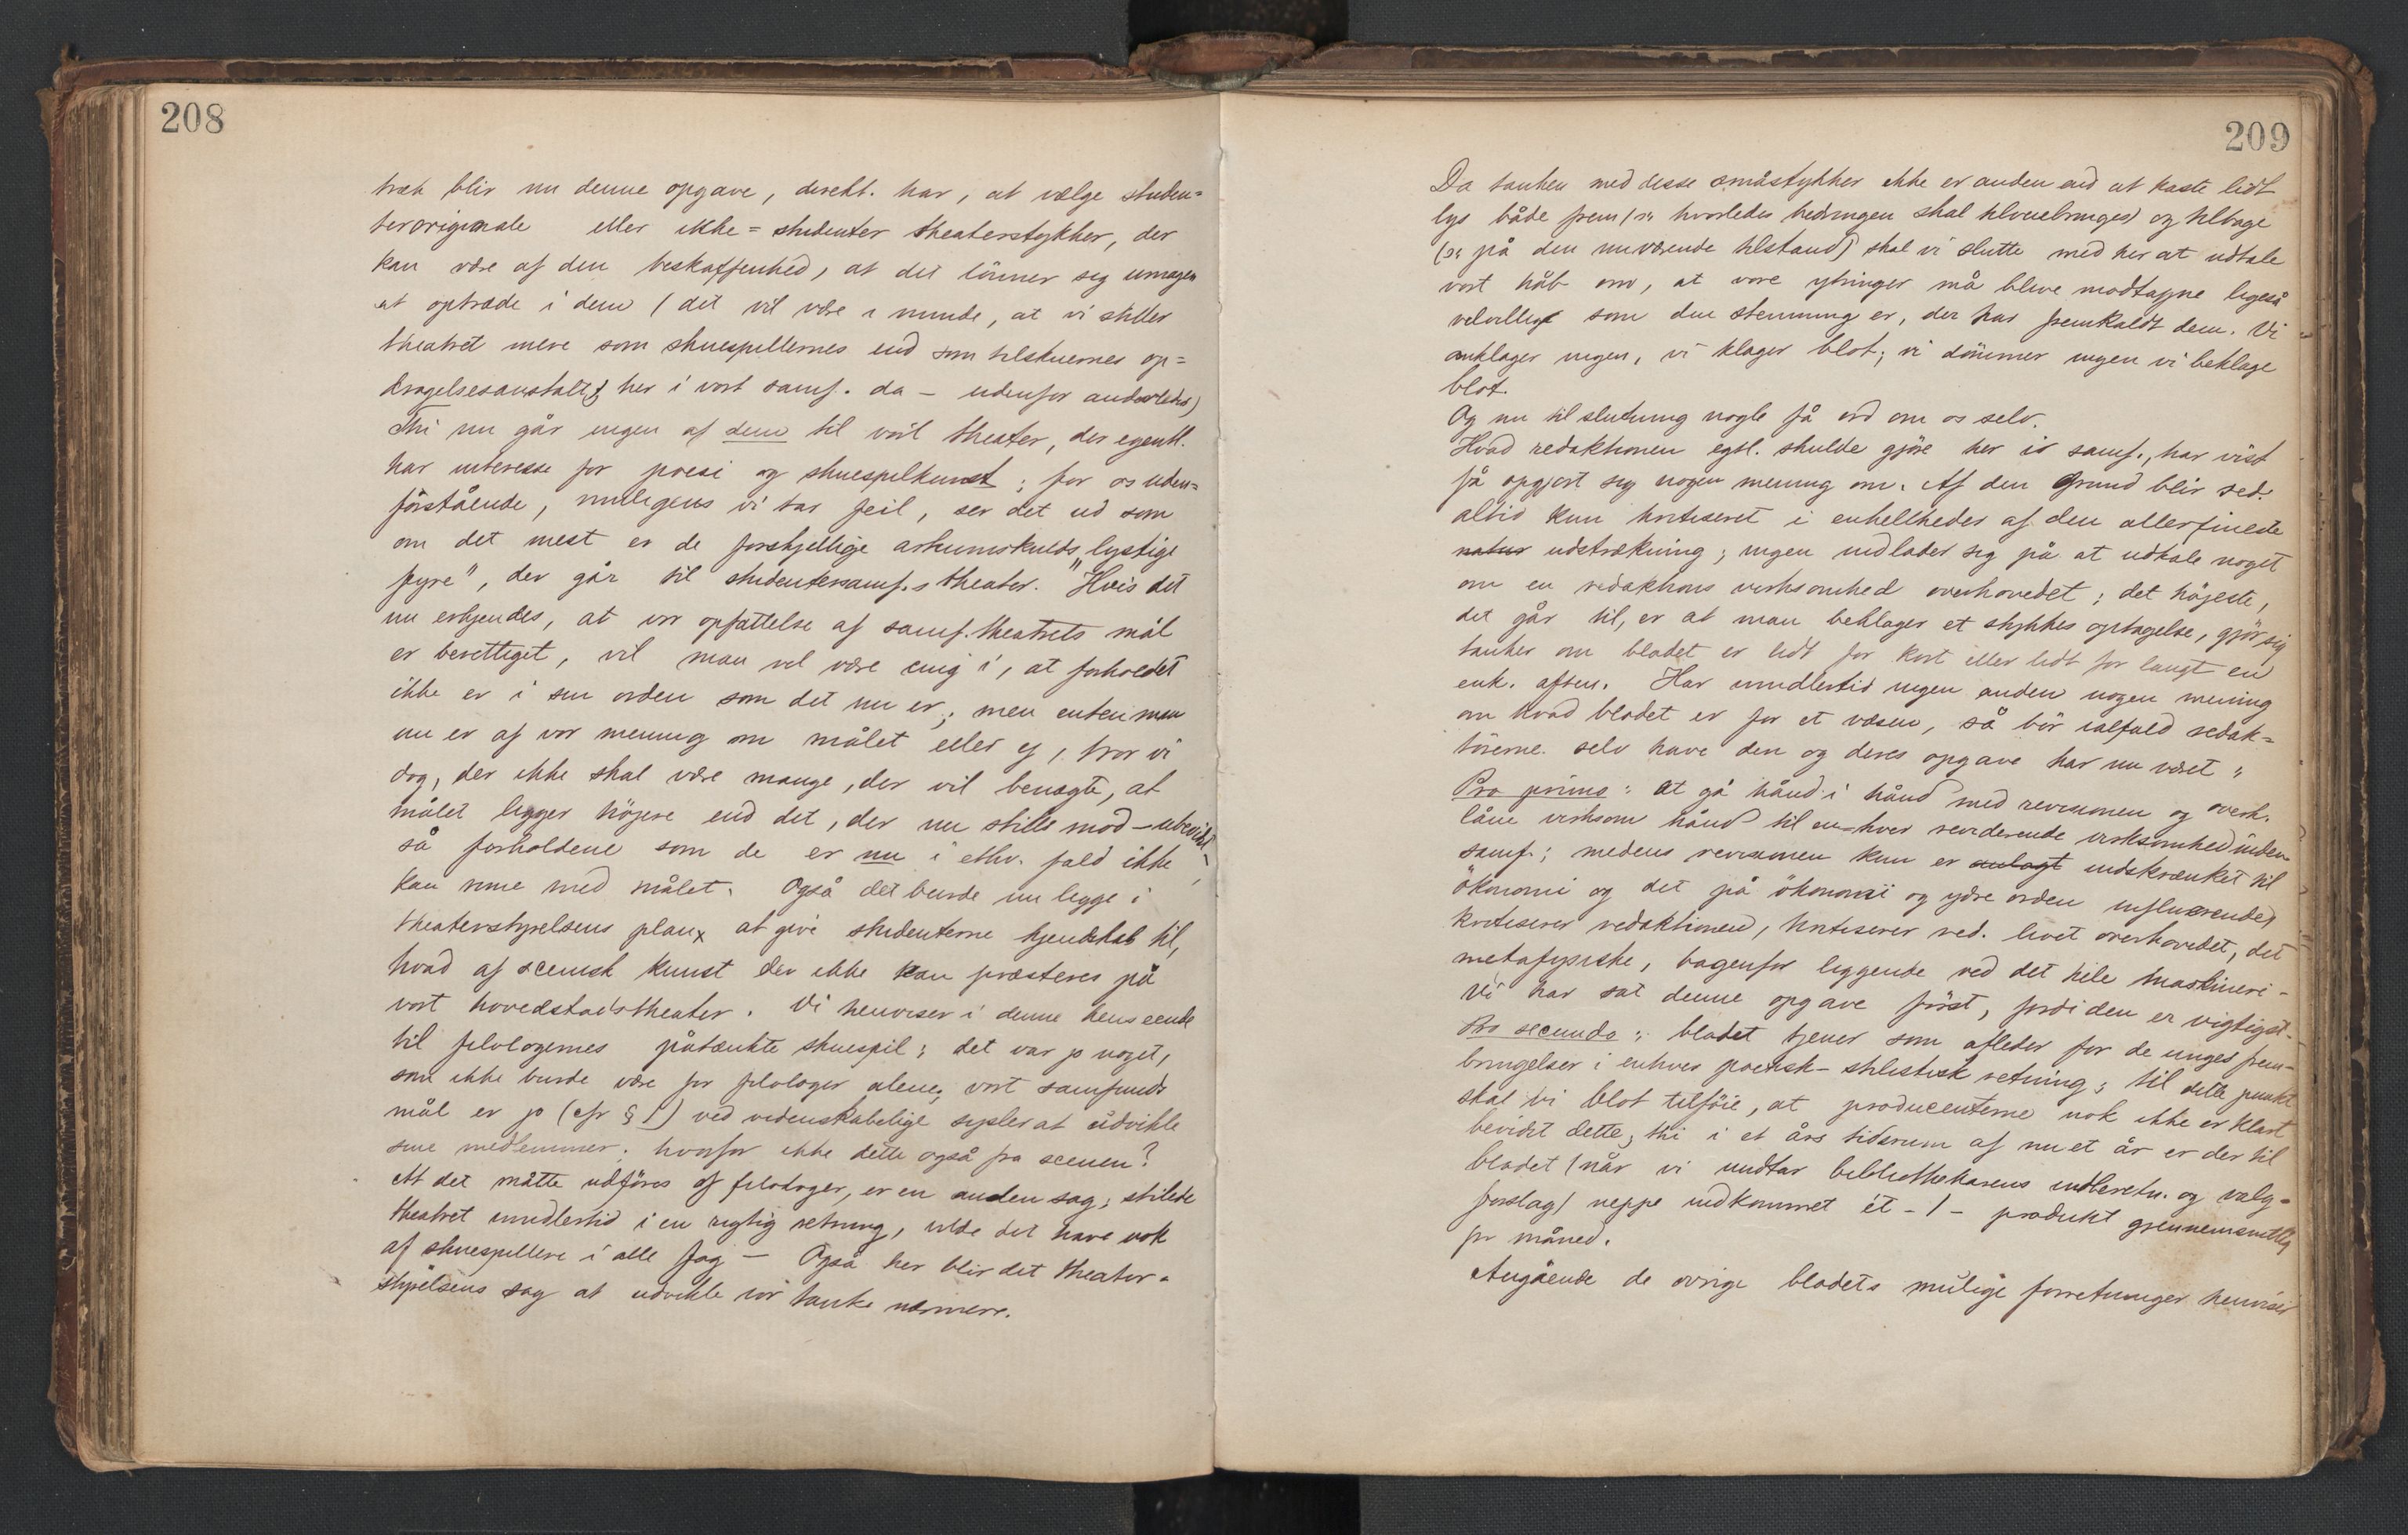 208
træk blir nu denne opgave, direkt. har, at vælge studen=
teroriginale eller ikke=studenter theaterstykker, der
kan være af den beskaffenhed, at det lönner seg umagen
at optræde i dem (det vil være i minde, at vi stiller
theatret mere som skuespillernes end som tilskuernes op=
dragelsesanstalt, her i vort samf. da - udenfor anderledes)
Thi nu går ingen af dem til vort theater, der egentl.
har interesse for poesi og skuespilkunst; for os uden=
forstående, muligens vi tar feil, ser det ud som
om det mest er de forskjellige artiumskulds "lystige
fyre", der går til studentersamf.s theater. Hvis det
nu erkjendes, at vor opfattelse af samf.theatrets mål
er berettiget, vil man vel være enig i, at forholdet
ikke er i sin orden som det nu er; men enten man
nu er af vor mening om målet eller ej, tror vi
dog, der ikke skal være mange, der vil benægte, at
målet ligger höjere end det, der nu stilles mod -
så forholdene som de er nu i ethv. fald ikke
kan rime med målet. Også det burde nu ligge i
theaterstyrelsens plan at give studenterne kjendskab til,
hvad af scenisk kunst der ikke kan præsteres på
vort hovedstadstheater. Vi henviser i denne henseende
til filologernes påtænkte skuespil; det var jo noget,
som ikke burde være for filologer alene; vort samfunds
mål er jo (cfr § 1) ved videnskabelige sysler at udvikle
sine medlemmer; hvorfor ikke dette også fra scenen?
At det måtte udföres af filologer, er en anden sag; stilede
theatret imidlertid i en rigtig retning, vilde det have nok
af skuespillere i alle fag - Også her blir det theater=
styrelsens sag at udvikle vor tanke nærmere.
209
Da tanken med disse småstykker ikke er anden end at kaste lidt
lys både frem (ɔ: hvorledes bedringen skal tilveiebringes) og tilbage
(ɔ: på den nuværende tilstand) skal vi slutte med her at udtale
vort håb om, at vore ytringer må blive modtagne ligeså
velvillige som den stemning er, der har fremkaldt dem. Vi
anklager ingen, vi klager blot; vi dömmer ingen vi beklage
blot.
Og nu til slutning nogle få ord om os selv.
Hvad redaktionen egtl. skulde gjöre her i samf., har vist
få opgjort sig nogen mening om. Af den Grund blir red.
altid kun kritiseret i enkeltheder af den allerfineste
natur udstrækning; ingen indlader sig på at udtale noget
om en redaktions virksomhed overhovedet; det höjeste,
det går til, er at man beklager et stykkes optagelse, gjör sig
tanker om bladet er lidt for kort eller lidt for langt en
enk. aften. Har imidlertid ingen anden nogen mening
om hvad bladet er for et væsen, så bör ialfald redak=
törerne selv have den og deres opgave har nu været:
Pro primo: at gå hånd i hånd med revisionen og overh.
låne virksom hånd til en-hver reviderende virksomhed inden
samf.; medens revisionen kun er anlagt indskrænket til
ökonomi og det på ökonomi og ydre orden influerende,
kritiserer redaktionen, kritiserer red. livet overhovedet, det
metafysiske, bagenfor liggende ved det hele maskineri -
Vi har sat denne opgave först, fordi den er vigtigst -
Pro secundo: bladet tjener som afleder for de unges frem-
bringelser i enhver poetisk-stilistisk retning; til dette punkt
skal vi blot tilföie, at producenterne nok ikke er klart
bevidst dette; thi i et års tidsrum af nu et år er der til
bladet (når vi undtar bibliothekarens indberetn. og valg=
forslag) neppe indkommet ét - 1 - produkt gjennemsnitlig
pr måned.
Angående de övrige bladets mulige forretninger henviser